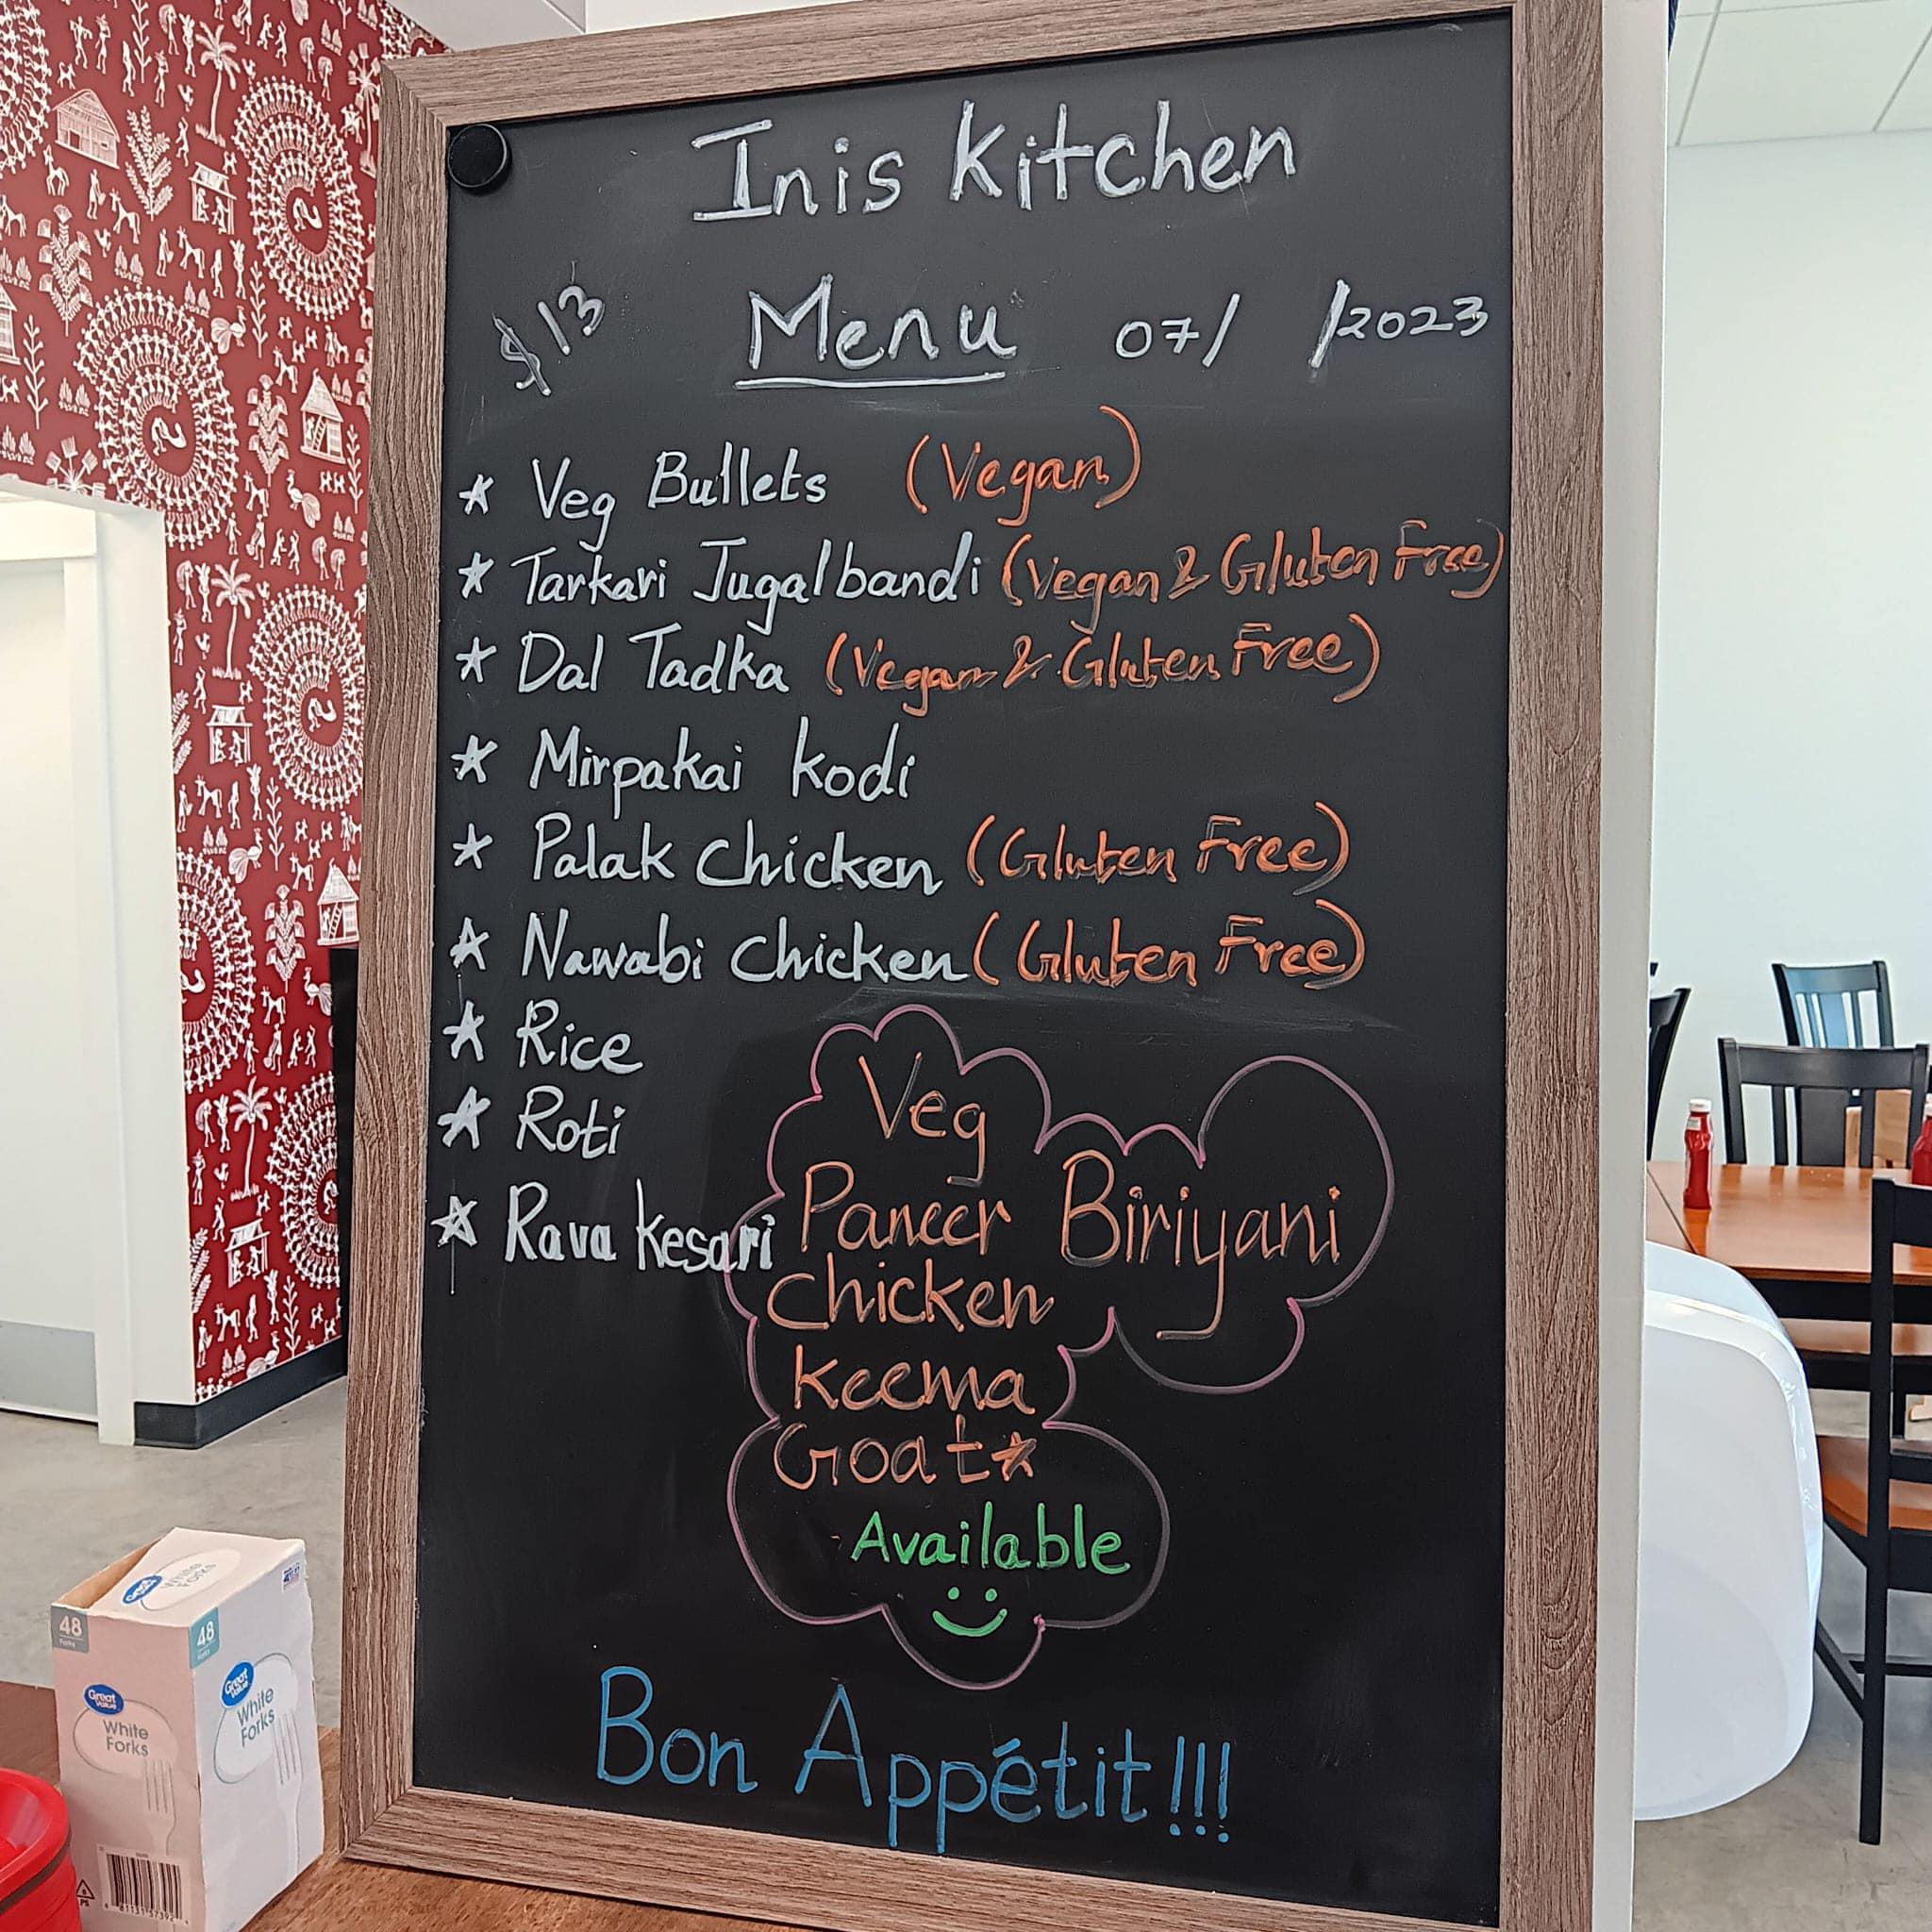 Inis Kitchen
$13 Menu 07/ /2023
* Veg Bullets (Vegan)
* Tarkari Jugalbandi (Vegan & Gluten Free)
* Dal Tadka (Vegan & Gluten Free)
* Mirpakai kodi
* Palak chicken (Gluten Free)
* Nawabi chicken (Gluten Free)
* Rice
* Roti
* Rava kesari
Veg
Paneer Biriyani
chicken
keema
Goat*
Available
Bon Appétit!!!
48
48
Great Value
White Forks
Great Value
White
Forks
Great Value
White
Forks